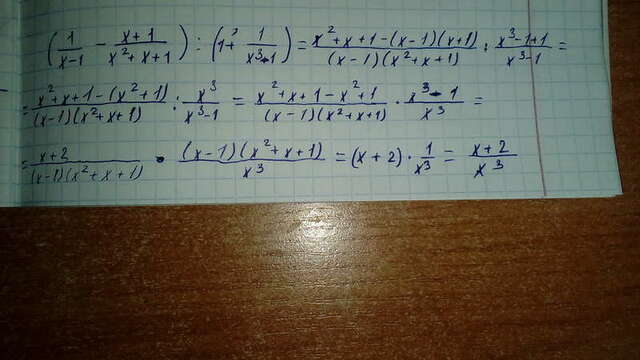 (1/(x-1) - (x+1)/(x²+x+1)) : (1 + 1/(x³-1)) = (x²+x+1-(x-1)(x+1))/((x-1)(x²+x+1)) : (x³-1+1)/(x³-1) =
= (x²+x+1-(x²-1))/((x-1)(x²+x+1)) : x³/(x³-1) = (x²+x+1-x²+1)/((x-1)(x²+x+1)) · (x³-1)/x³ =
= (x+2)/((x-1)(x²+x+1)) · ((x-1)(x²+x+1))/x³ = (x+2) · 1/x³ = (x+2)/x³